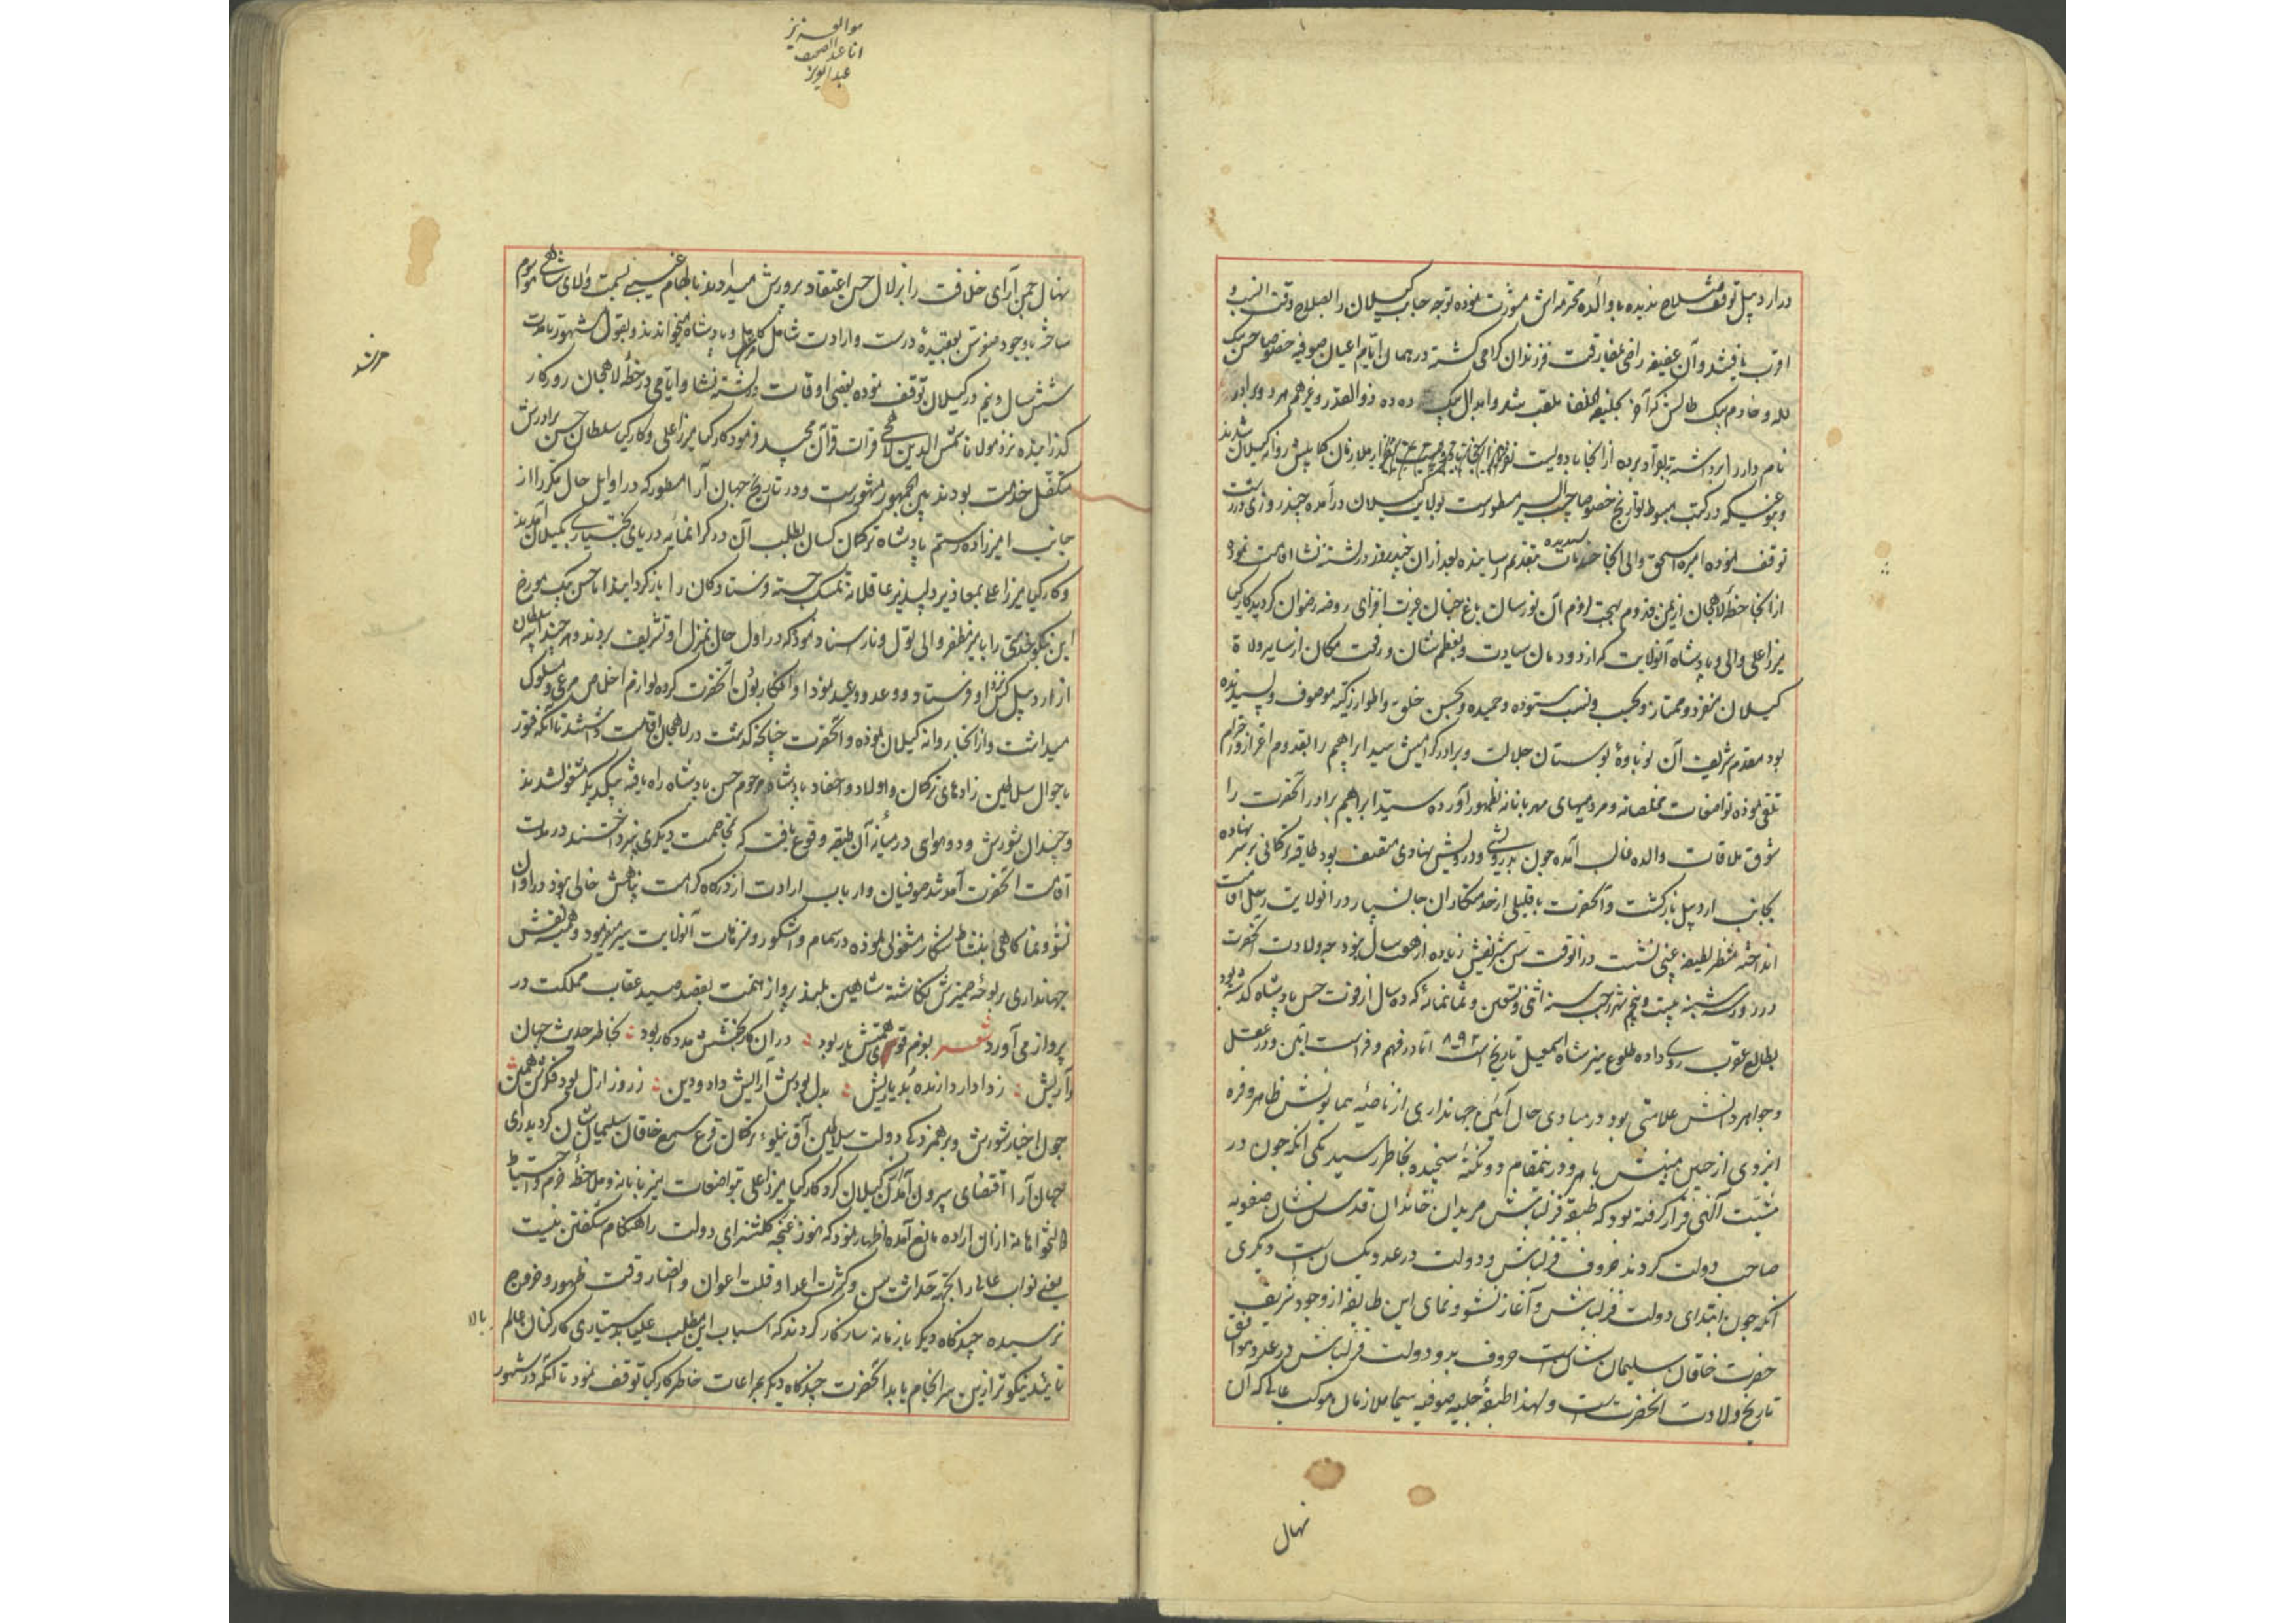 در اردبیل توقف صلاح ندیده با والده محترمه اش مشورت نموده توجه جانب کیلان را بصلاح وقت انسب و
اقرب یافتند و آن عفیفه راضی بمفارقت فرزندان کرامی کشته در همان ایام اعیان صوفیه خصوصا حسن بیک
لله و خادم بیک طالش که آخر بخلیفة الخلفا ملقب شد و ابدال بیک ده ده ذوالقدر و غیرهم مرد و برادر
نام دار را برداشته از انجا با دویست نفر از ملازمان کابیش روانه کیلان شدند
و بنوعیکه در کتب مبسوط تواریخ خصوصا حبیب السیر مسطورست بولایت کیلان درآمده چند روزی در رشت
توقف نموده امیره اسحق والی انجا خدمات پسندیده بتقدیم رسانیده بعد از ان چند روز در لشته نشا اقامت نموده
از انجا خطه لاهجان از یمن قدوم بهجت لزوم آن نورسان باغ جنان عزت افزای روضه رضوان کردید کارکیا
میرزا علی والی و پادشاه آنولایت که از دودمان سیادت و بعظم شان و رفعت مکان از سایر ولاة
کیلان منفرد و ممتاز و بحسب و نسب ستوده و حمیده و بحسن خلق و اطوار زکیه موصوف و پسندیده
بود مقدم شریف آن نوباوه بوستان جلالت و برادر کرامیش سید ابراهیم را بقدوم اعزاز و احترام
تلقی نموده تواضعات مخلصانه و مردمیهای مهربانانه بظهور آورده سید ابراهیم برادر آنحضرت را
شوق ملاقات والده غالب آمده چون بدرویشی و درویش نهادی متصف بود طاقیه ترکمانی بر سر نهاده
بجانب اردبیل بازکشت و آنحضرت با قلیلی از خدمتکاران جانسپار در انولایت رحل اقامت
انداخته منتظر لطیفه غیبی نشست در انوقت سن شریفش زیاده از هفت سال نبود چه ولادت آنحضرت
در روز سه شنبه بیست و پنجم شهر رجب سنه اثنی و تسعین و ثمانمائه که ده سال از فوت حسن پادشاه کذشته بود
بطالع عقرب روی داده طلوع نیر شاه اسمعیل تاریخ است ۸۹۲ اما در فهم و فراست آیتی و در عقل
و جواهر دانش علامتی بود در مبادی حال آیین جهانداری از ناصیه همایونش ظاهر و فره
ایزدی از جبین مبینش باهر و درینمقام دو نکته سنجیده بخاطر رسید یکی انکه چون در
مشیت آلهی قرار کرفته بود که طبقه قزلباش مریدان خاندان قدس نشان صفویه
صاحب دولت کردند حروف قزلباش و دولت در عدد یکسان است دیکری
انکه چون ابتدای دولت قزلباش و آغاز نشو و نمای این طایفه از وجود شریف
حضرت خاقان سلیمان شان است حروف بدو دولت قزلباش در عدد موافق
تاریخ ولادت انحضرت است و لهذا طبقه جلیه صوفیه سیما ملازمان موکب عالی که آن
نهال
هو العزیز
عبدالعزیز
نهال چمن آرای خلافت را بزلال حسن اعتقاد پرورش میدادند بالهام غیبی بسمت والای شاهی موسوم
ساخته با وجود صغر سن بعقیده درست و ارادت شامل مرشد کامل و پادشاه میخواندند و بقول مشهور مدت
شش سال و نیم در کیلان توقف نموده بعضی اوقات در لشته نشا و ایامی در خطه لاهجان روزکار
کذرانیده نزد مولانا شمس الدین لاهجی قرائت قرآن مجید فرمود کارکیا میرزا علی و کارکیا سلطان حسن برادرش
متکفل خدمت بودند بین الجمهور مشهورست و در تاریخ جهان آرا مسطور که در اوایل حال مکررا از
جانب امیرزاده رستم پادشاه ترکمان کسان بطلب آن در کرانمایه دریای بختیاری بکیلان آمدند
و کارکیا میرزا علی بمعاذیر دلپذیر عاقلانه تمسک جسته فرستادکان را بازکردانید اما حسن بیک مورخ
این نیکو خدمتی را بامیر مظفر والی تول و ناو اسناد نموده که در اول حال بمنزل او تشریف بردند و هر چند ایبه سلطان
از اردبیل کس نزد او فرستاد و وعد و وعید نمود او انکار بودن آنحضرت کرده لوازم اخلاص مرعی و مسلوک
میداشت و از انجا روانه کیلان نموده و آنحضرت چنانچه کذشت در لاهجان اقامت داشتند تا آنکه فتور
باحوال سلاطین زادهای ترکمان و اولاد و احفاد پادشاه مرحوم حسن پادشاه راه یافته بیکدیکر مشغول شدند
و چندان شورش و دو هوای در میانه آن طبقه وقوع یافت که بمخاصمت دیکری نپرداختند در مدت
اقامت آنحضرت آمد شد صوفیان و ارباب ارادت از درکاه کرامت پناهش خالی نبود در اوان
نشو و نما کاهی بنشاط شکار مشغولی نموده در سمام و اشکور و متنزهات آنولایت سیر میفرمود و همکی نقش
جهانداری بر لوحه ضمیرش نکاشته شاهین بلند پرواز همت بقصد صید عقاب مملکت در
پرواز می آورد شعر بعزم قوی همتش یار بود در ان کار بختش مددکار بود بخاطر حدیث جهان
وآریش ز دادار دارنده بد یاریش بدل بودش آرایش داد و دین ز روز ازل بود فکرش همین
چون اخبار شورش و برهمزدکی دولت سلاطین آق قینلوء ترکمان قرع سمع خاقان سلیمان شان کردید رای
جهان آرا اقتضای بیرون آمدن کیلان کرد کارکیا میرزا علی بتواضعات میزبانانه و ملاحظه حزم و احتیاط
نیکخواهانه از ان اراده مانع آمده اظهار نمود که هنوز غنچه کلشنرای دولت را هنکام شکفتن نیست
یعنی نواب عالی را بجهة حداثت سن و کثرت اعدا و قلت اعوان و انصار وقت ظهور و خروج
نرسیده چندکاه دیکر با زمانه سازکار کردند که اسباب این مطلب علیا بدستیاری کارکنان عالم بالا
تا شد نیکوتر ازین سرانجام یابد آنحضرت چندکاه دیکر بمراعات خاطر کارکیا توقف نمود تا آنکه در شهور